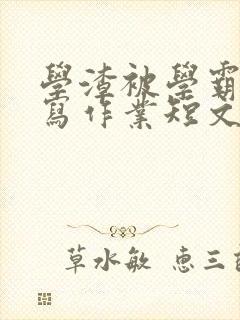 學渣被學霸
寫作業短文
草水敏 惠三